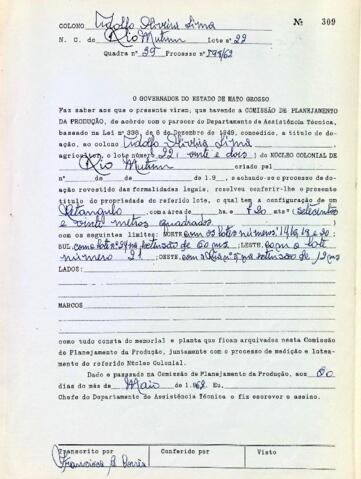 COLONO Adolfo Oliveira Lima Nº 309
N. C. de Rio Mutum Lote nº 22
Quadra nº 29 Processo nº 598/62
O GOVERNADOR DO ESTADO DE MATO GROSSO
Faz saber aos que o presente virem, que havendo a COMISSÃO DE PLANEJAMENTO
DA PRODUÇÃO, de acôrdo com o parecer do Departamento de Assistência Técnica,
baseado na Lei nº 336, de 6 de Dezembro de 1949, concedido, a título de doa-
ção, ao colono Adolfo Oliveira Lima
agricultor, o lote número 22 (vinte e dois) do NÚCLEO COLONIAL DE
Rio Mutum criado pel
nº de de de 1.9 , e achando-se o processo de doa-
ção revestido das formalidades legais, resolveu conferir-lhe o presente
título de propriedade do referido lote, o qual tem a configuração de um
Retangulo com a área de ha. e 720 ms² (setecentos
e vinte metros quadrados
com os seguintes limites: NORTE, com os lotes números 14, 18 e 20:
SUL, com o lote nº 24 na extensão de 60 ms; LESTE, com o lote
número 21 ; OESTE, com a na extensão de 12 ms
LADOS:
MARCOS
como tudo consta do memorial e planta que ficam arquivados nesta Comissão
de Planejamento da Produção, juntamente com o processo de medição e lotea-
mento do referido Núcleo Colonial.
Dado e passado na Comissão de Planejamento da Produção, aos 30
dias do mês de Maio de 1.962. Eu,
Chefe do Departamento de Assistência Técnica o fiz escrever e assino.
Transcrito por Conferido por Visto
Francisca B.